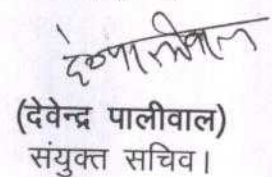 (देवेन्द्र पालीवाल)
संयुक्त सचिव।